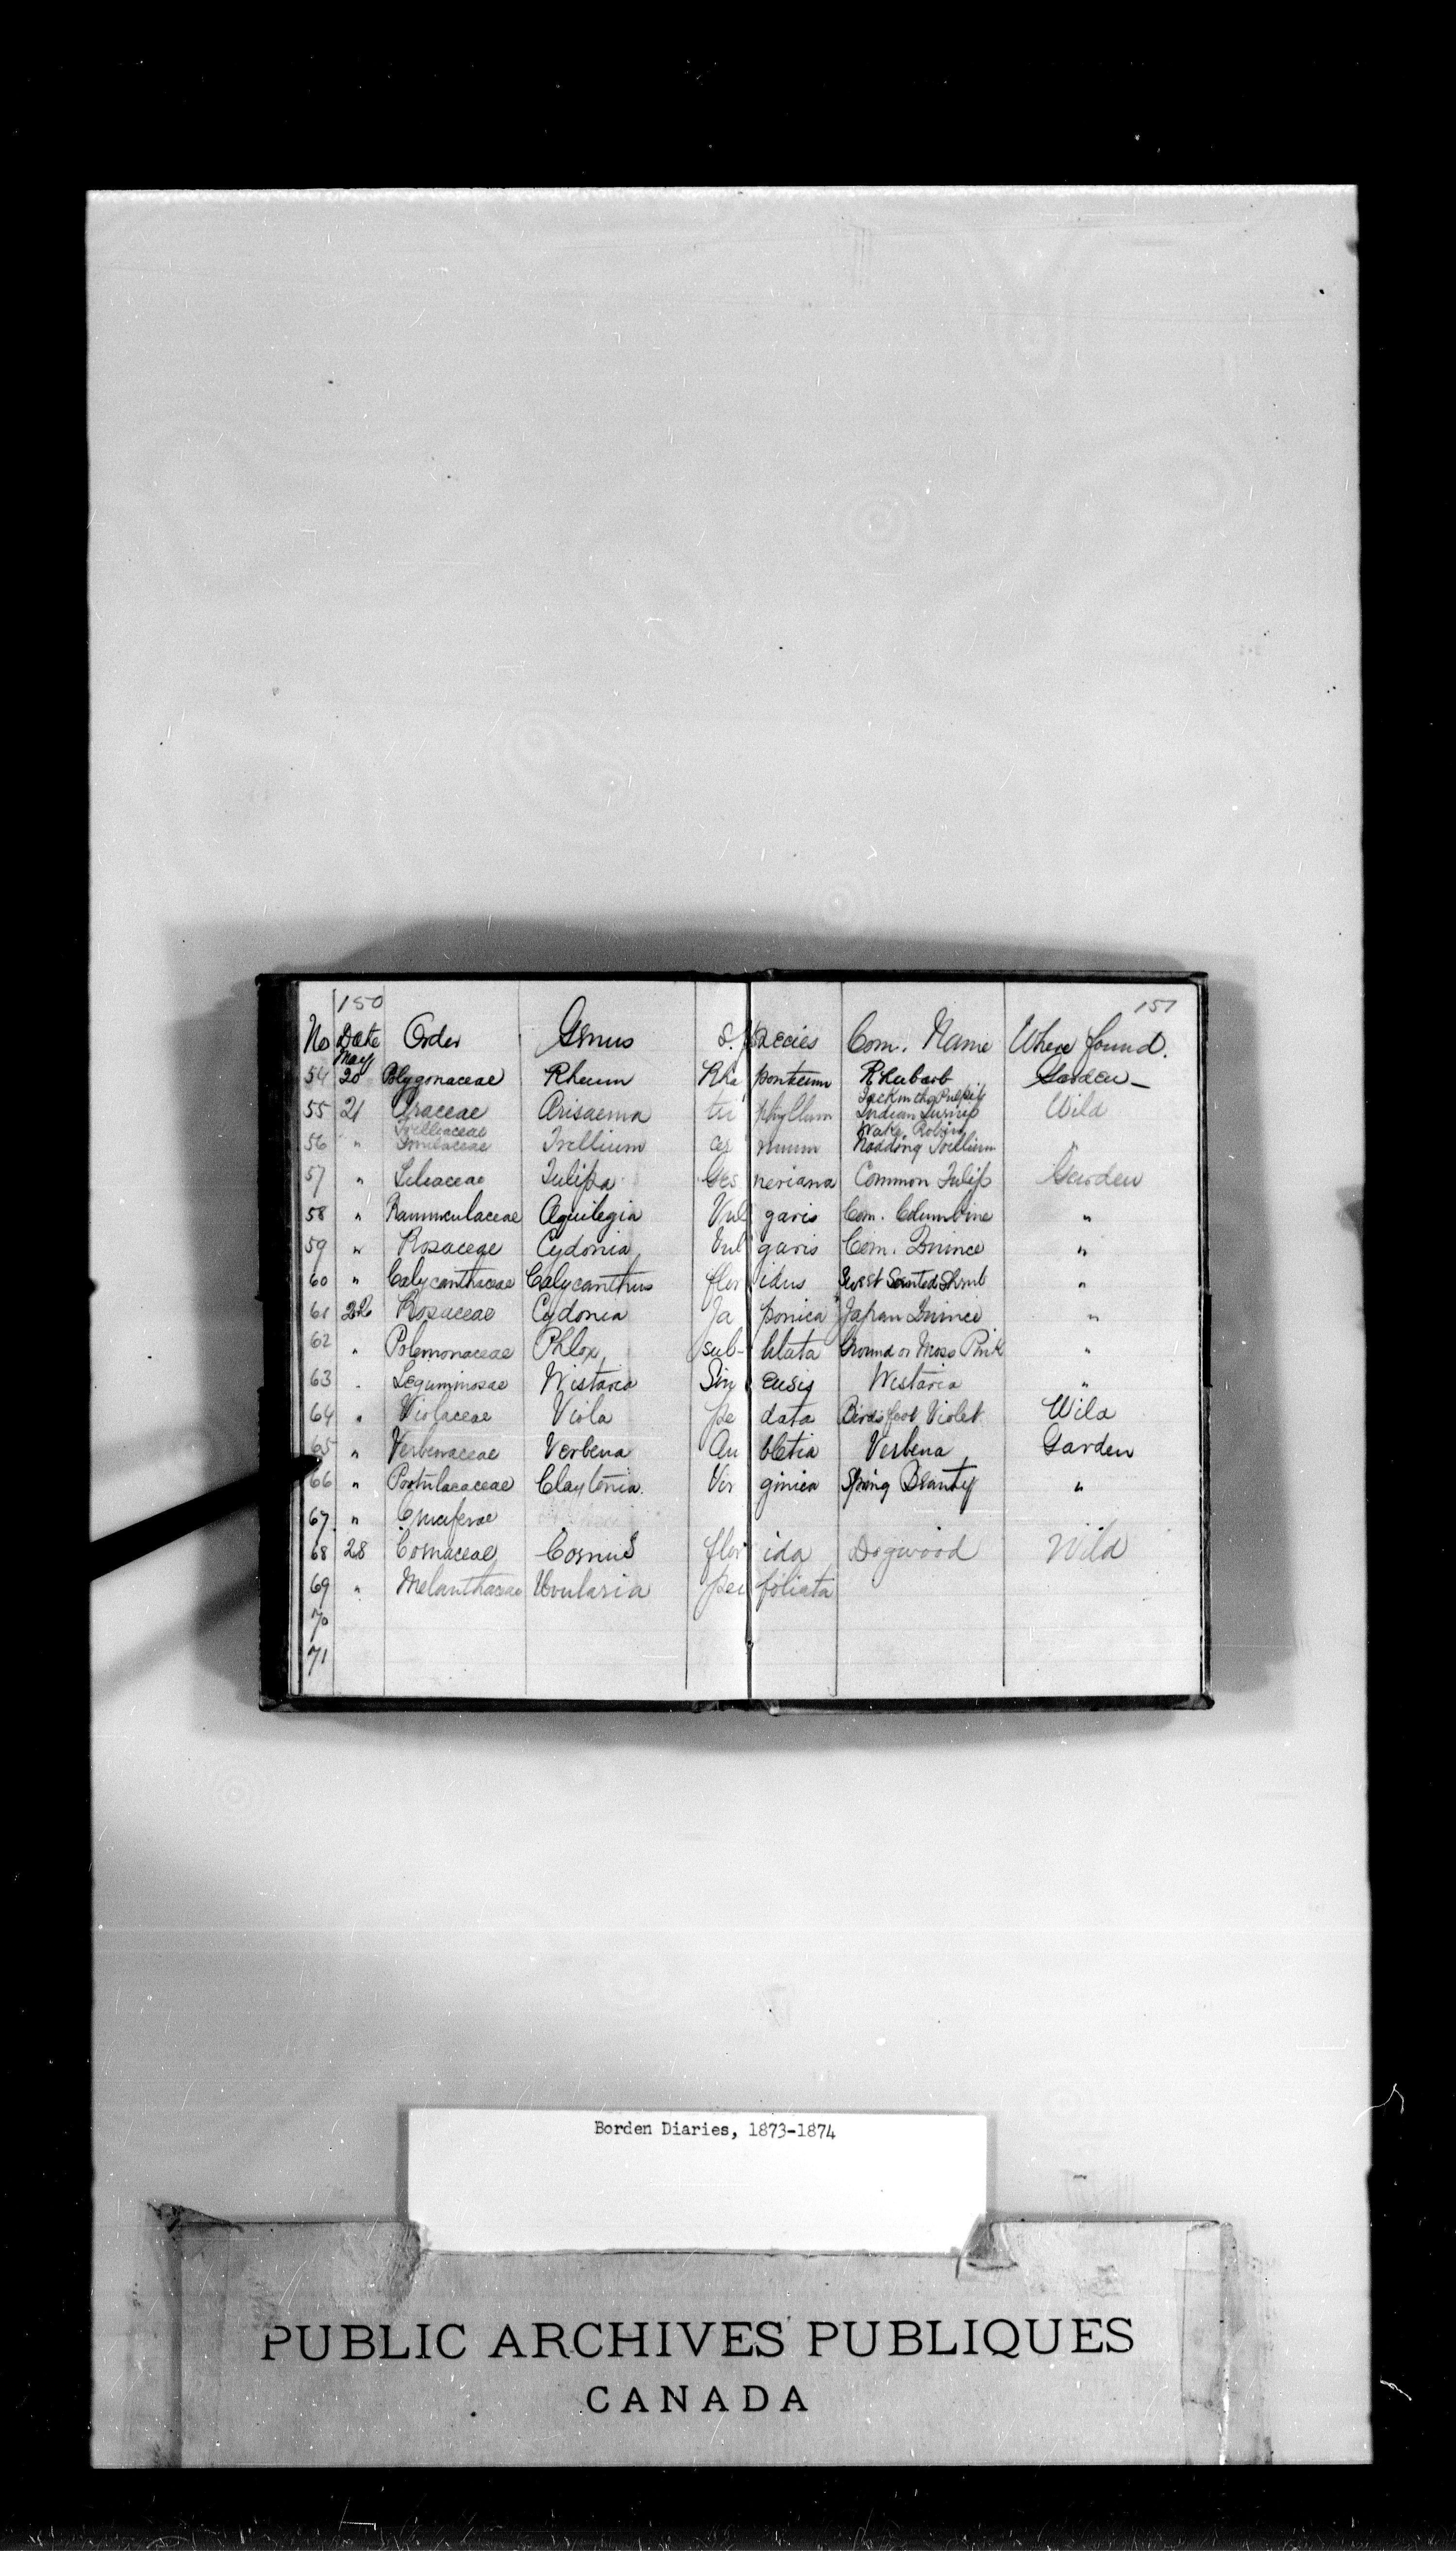 150 151
No Date Order Genus Species Com. Name Where found.
May
54 20 Polygonaceae Rheum Rha ponticum Rhubarb Garden
Jack in the Pulpit
55 21 Araceae Arisaema tri phyllum Indian Turnip Wild
Trilliaceae Wake Robin
56 " Smilaceae Trillium cer nuum Nodding Trillium "
57 " Liliaceae Tulipa Ges neriana Common Tulip Garden
58 " Ranunculaceae Aquilegia Vul garis Com. Columbine "
59 " Rosaceae Cydonia Vul garis Com. Quince "
60 " Calycanthaceae Calycanthus flor idus Sweet Scented Shrub "
61 22 Rosaceae Cydonia Ja ponica Japan Quince "
62 " Polemonaceae Phlox sub- ulata Ground or Moss Pink "
63 " Leguminosae Wistaria Sin ensis Wistaria "
64 " Violaceae Viola pe data Birdsfoot Violet Wild
65 " Verbenaceae Verbena Au bletia Verbena Garden
66 " Portulacaceae Claytonia Vir ginica Spring Beauty "
67 " Cruciferae
68 28 Cornaceae Cornus flor ida Dogwood Wild
69 " Melanthaceae Uvularia per foliata
70
71
Borden Diaries, 1873-1874
PUBLIC ARCHIVES PUBLIQUES
CANADA